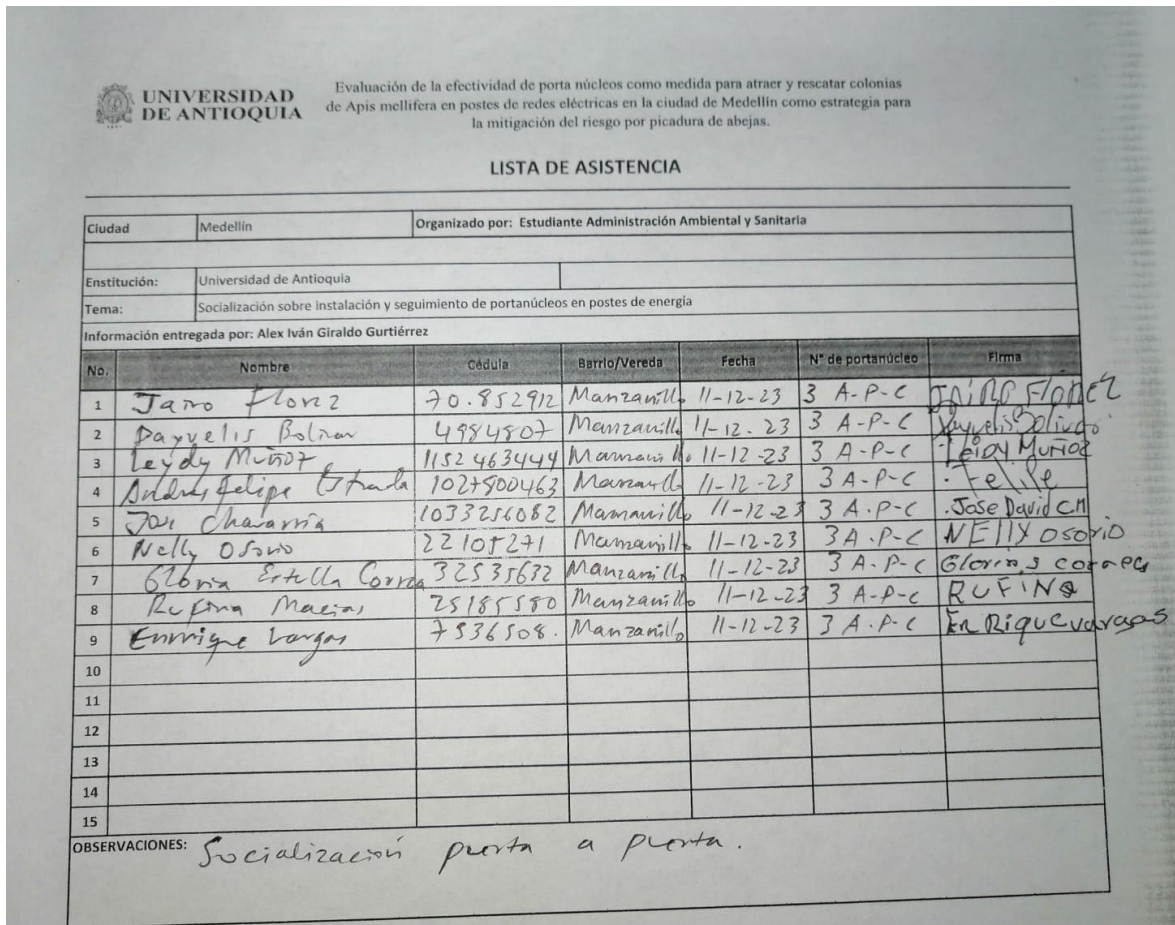 UNIVERSIDAD
DE ANTIOQUIA
Evaluación de la efectividad de porta núcleos como medida para atraer y rescatar colonias
de Apis mellifera en postes de redes eléctricas en la ciudad de Medellín como estrategia para
la mitigación del riesgo por picadura de abejas.
LISTA DE ASISTENCIA
Ciudad Medellín Organizado por: Estudiante Administración Ambiental y Sanitaria
Enstitución: Universidad de Antioquia
Tema: Socialización sobre instalación y seguimiento de portanúcleos en postes de energía
Información entregada por: Alex Iván Giraldo Gurtiérrez
No. Nombre Cédula Barrio/Vereda Fecha N° de portanúcleo Firma
1 Jairo Florez 70.852912 Manzanillo 11-12-23 3 A-P-C JAIRO FLOREZ
2 Dayvelis Bolivar 4984807 Manzanillo 11-12-23 3 A-P-C
3 Leydy Muñoz 1152463444 Manzanillo 11-12-23 3 A-P-C Leidy Muñoz
4 Andres felipe Estrada 1027800463 Manzanillo 11-12-23 3 A-P-C Felipe
5 Chavarría 1033256082 Manzanillo 11-12-23 3 A-P-C Jose David C.M
6 Nelly Osorio 22105271 Manzanillo 11-12-23 3 A-P-C NELLY OSORIO
7 Gloria Estella Correa 32535632 Manzanillo 11-12-23 3 A-P-C Gloria S correa
8 Rufina Macias 25185580 Manzanillo 11-12-23 3 A-P-C RUFINA
9 Enrrique Vargas 7536508. Manzanillo 11-12-23 3 A-P-C EnRique vargas
10
11
12
13
14
15
OBSERVACIONES: Socialización puerta a puerta.